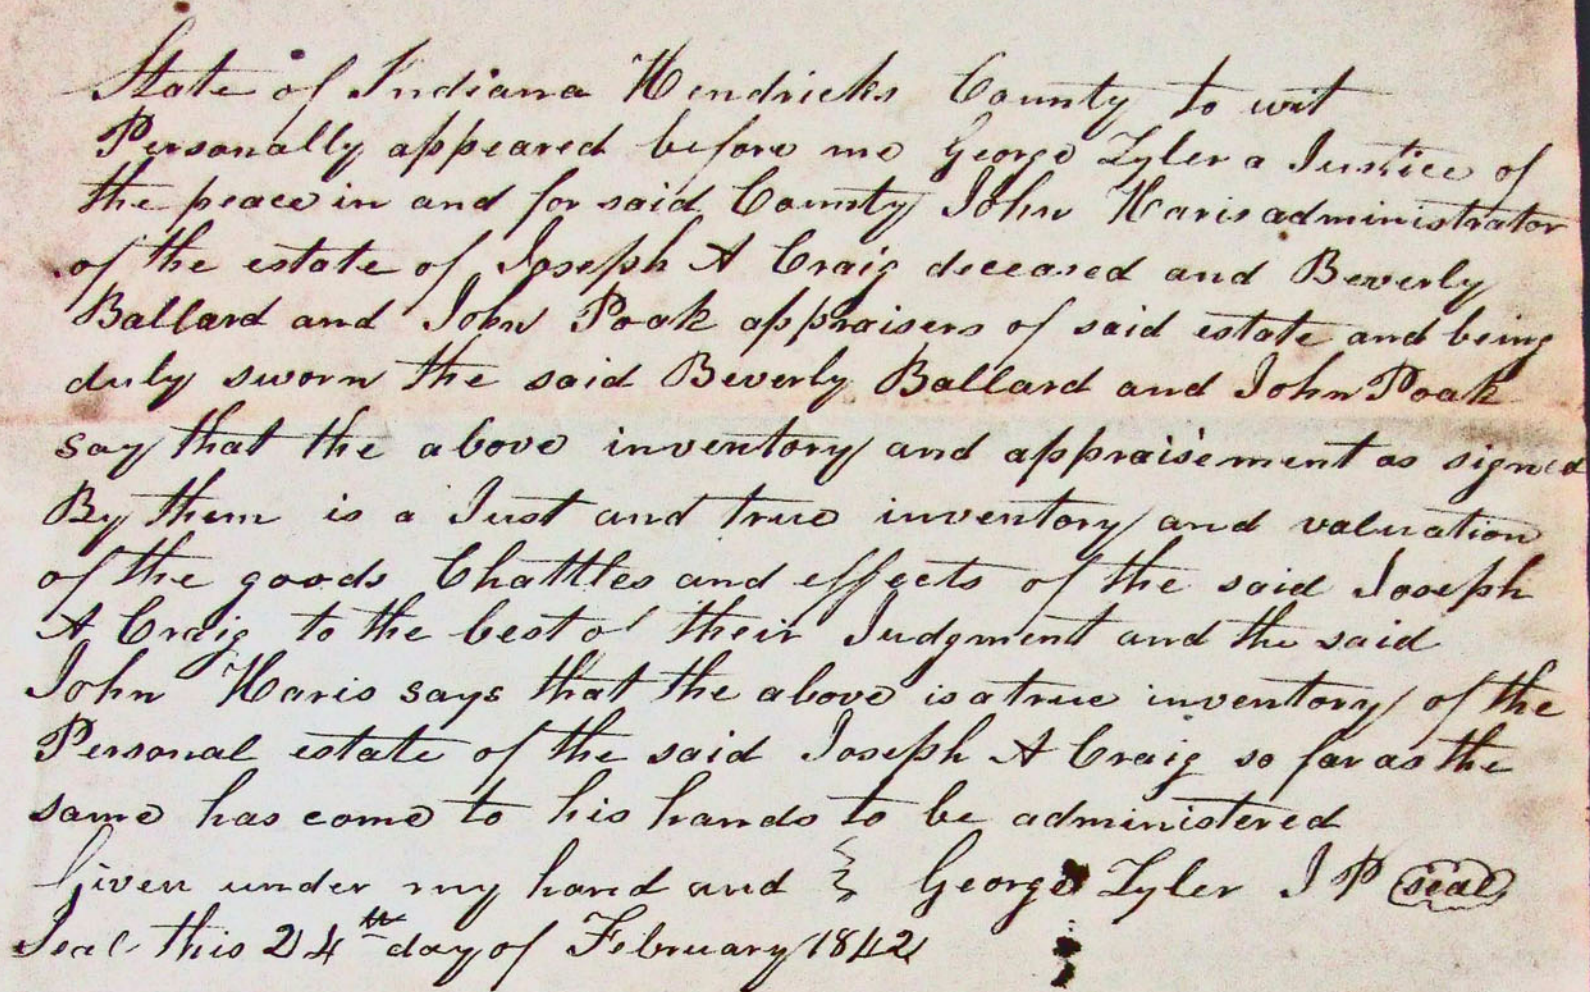 State of Indiana Hendricks County to wit
Personally appeared before me George Zyler a Justice of
the peace in and for said County John Haris administrator
of the estate of Joseph A Craig deceased and Beverly
Ballard and John Poak appraisers of said estate and being
duly sworn the said Beverly Ballard and John Poak
say that the above inventory and appraisement as signed
By them is a Just and true inventory and valuation
of the goods Chattles and effects of the said Joseph
A Craig to the best of their Judgment and the said
John Haris says that the above is a true inventory of the
Personal estate of the said Joseph A Craig so far as the
same has come to his hands to be administered
Given under my hand and George Zyler J P seal
Seal this 24th day of February 1842